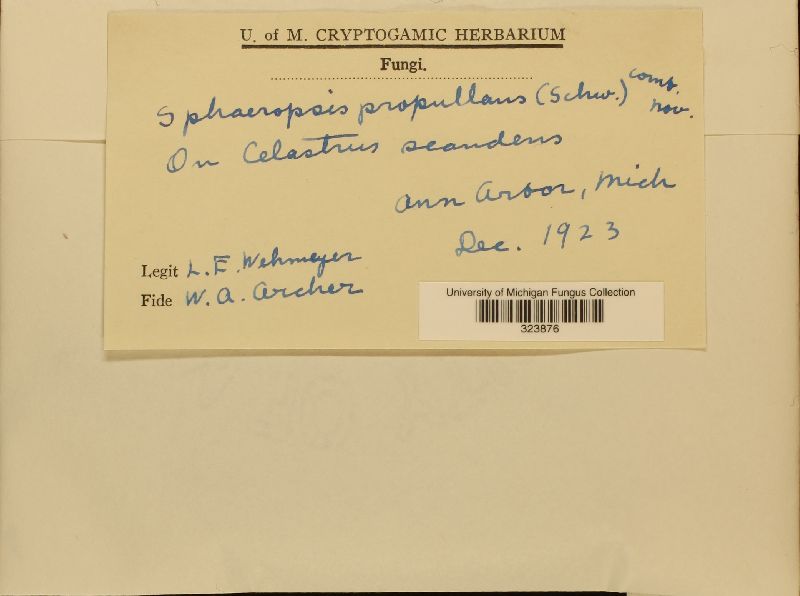 U. of M. CRYPTOGAMIC HERBARIUM
Fungi.
Sphaeropsis propullans (Schw.) comb. nov.
On Celastrus scandens
Ann Arbor, Mich
Dec. 1923
Legit L. E. Wehmeyer
Fide W. A. Archer
University of Michigan Fungus Collection
323876